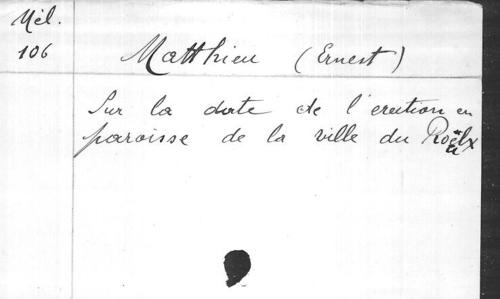 Mél.
106
Matthieu (Ernest)
Sur la date de l'erection en
paroisse de la ville du Roeulx